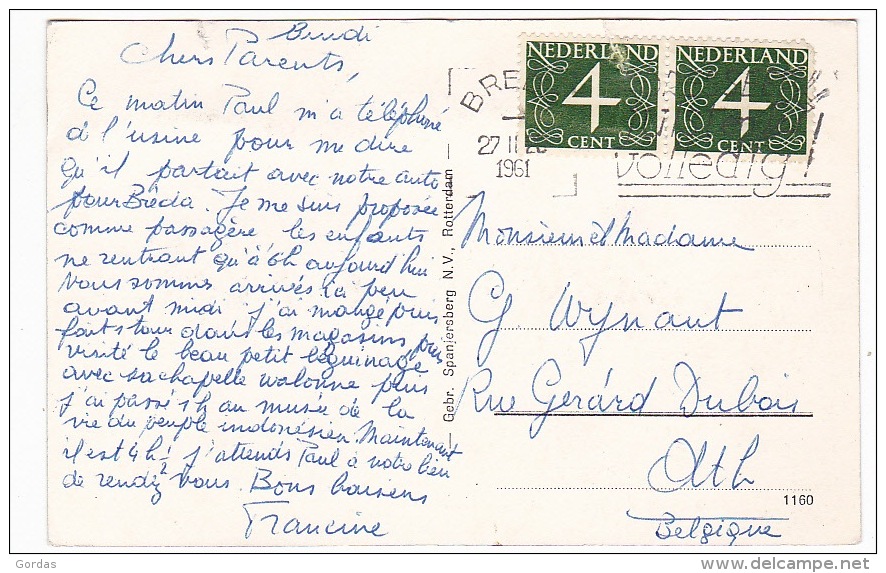 Chers Parents,
Ce matin Paul m'a téléphoné
de l'usine pour me dire
qu'il partait avec notre auto
pour Bréda. Je me suis proposée
comme passagère les enfants
ne rentrant qu'à 6h aujourd'hui
Nous sommes arrivés ici peu
avant midi j'ai mangé puis
fait 1 tour dans les magasins puis
visité le beau petit béguinage
avec sa chapelle walonne puis
j'ai passé 1h au musée de la
vie du peuple indonésien. Maintenant
il est 4h ½ j'attends Paul à notre lieu
de rendez vous. Bons baisers
Francine
Gebr. Spanjersberg N.V., Rotterdam
NEDERLAND
4
CENT
NEDERLAND
4
CENT
27 II
1961
volledig!
Monsieur et Madame
G. Wynant
Rue Gérard Dubois
Ath
Belgique
1160
Gordas
delcampe.net